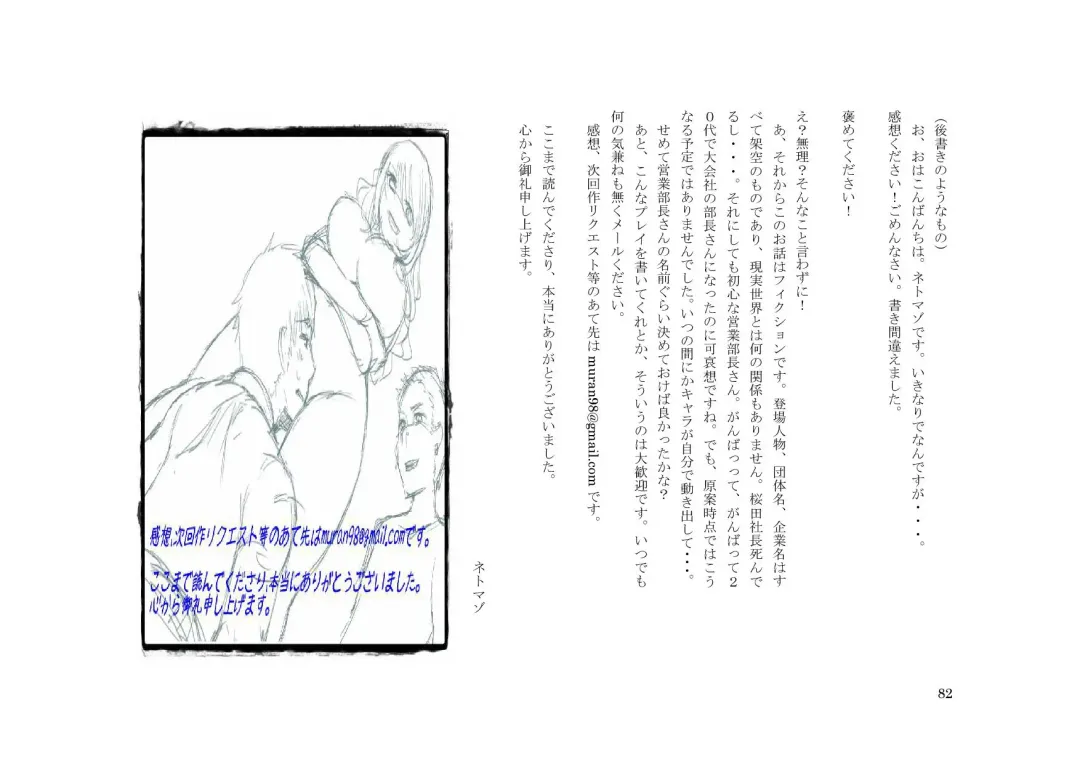 (後書きのようなもの)
お、おはこんばんちは。ネトマゾです。いきなりでなんですが・・・。
感想ください!ごめんなさい。書き間違えました。
褒めてください!
え?無理?そんなこと言わずに!
あ、それからこのお話はフィクションです。登場人物、団体名、企業名はす
べて架空のものであり、現実世界とは何の関係もありません。桜田社長死んで
るし・・・。それにしても初心な営業部長さん。がんばっって、がんばって2
0代で大会社の部長さんになったのに可哀想ですね。でも、原案時点ではこう
なる予定ではありませんでした。いつの間にかキャラが自分で動き出して・・・。
せめて営業部長さんの名前ぐらい決めておけば良かったかな?
あと、こんなプレイを書いてくれとか、そういうのは大歓迎です。いつでも
何の気兼ねも無くメールください。
感想、次回作リクエスト等のあて先は muran98@gmail.com です。
ここまで読んでくださり、本当にありがとうございました。
心から御礼申し上げます。
ネトマゾ
感想、次回作リクエスト等のあて先はmuran98@gmail.comです。
ここまで読んでくださり、本当にありがとうございました。
心から御礼申し上げます。
82